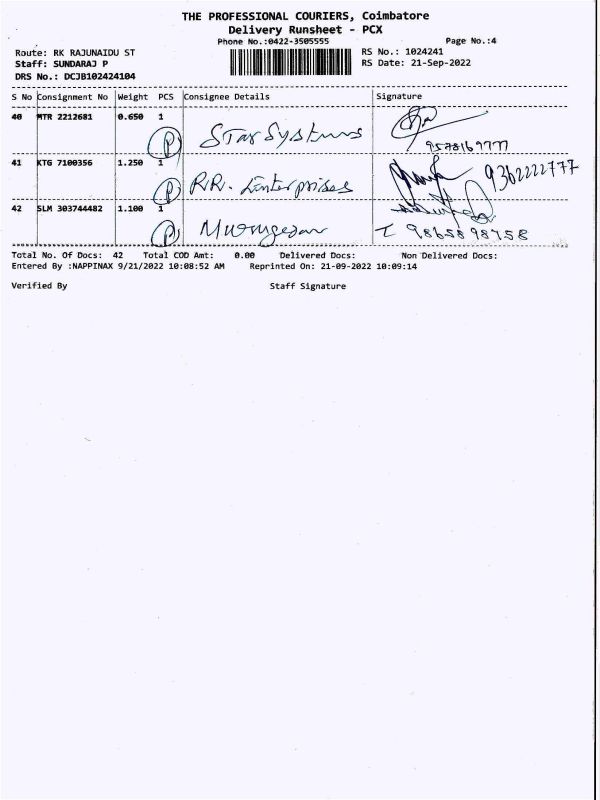 THE PROFESSIONAL COURIERS, Coimbatore
Delivery Runsheet - PCX
Phone No.:0422-3505555 Page No.:4
Route: RK RAJUNAIDU ST RS No.: 1024241
Staff: SUNDARAJ P RS Date: 21-Sep-2022
DRS No.: DCJB102424104
S No Consignment No Weight PCS Consignee Details Signature
40 MTR 2212681 0.650 1
P Star Systems 9578169777
41 KTG 7100356 1.250 1
P R.R. Enterprises 9362222777
42 SLM 303744482 1.100 1
P Murugesan 9865898758
Total No. Of Docs: 42 Total COD Amt: 0.00 Delivered Docs: Non Delivered Docs:
Entered By :NAPPINAX 9/21/2022 10:08:52 AM Reprinted On: 21-09-2022 10:09:14
Verified By Staff Signature